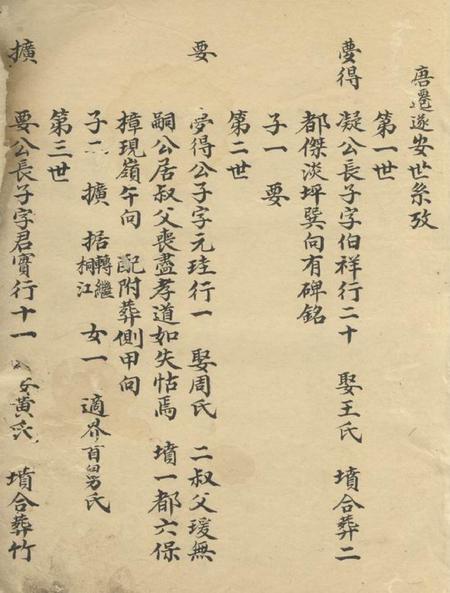 唐遷遂安世系攷
第一世
夢得 凝公長子字伯祥行二十 娶王氏 墳合葬二
都傑淡坪巽向有碑銘
子一 要
第二世
要 夢得公子字元珪行一 娶周氏 二叔父瑗無
嗣公居叔父喪盡孝道如失怙焉 墳一都六保
樟現嶺午向 配附葬側甲向
子二 擴 据轉繼桐江 女一 適界百畐勞氏
第三世
擴 要公長子字君實行十一 娶黃氏 墳合葬竹